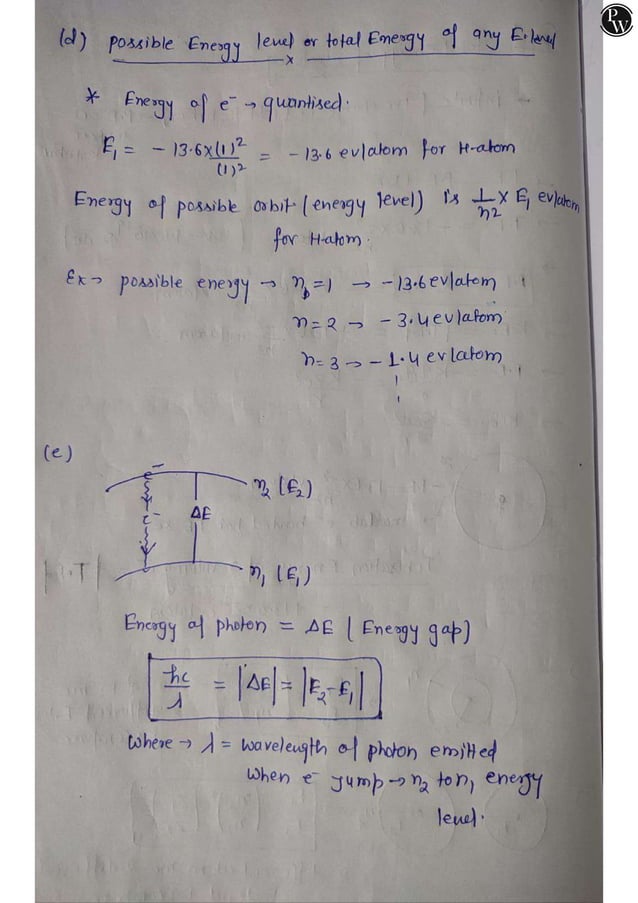 PW
(d) possible Energy level or total Energy of any E.level
* Energy of e⁻ → quantised.
E₁ = - 13.6 x (1)²/(1)² = - 13.6 ev/atom for H-atom
Energy of possible orbit (energy level) is 1/n² x E₁ ev/atom
for H-atom.
Ex → possible energy → n=1 → -13.6 ev/atom
n=2 → -3.4 ev/atom
n=3 → -1.4 ev/atom
(e)
e⁻
n₂ (E₂)
e⁻
ΔE
n₁ (E₁)
Energy of photon = ΔE (Energy gap)
hc/λ = |ΔE| = |E₂-E₁|
where → λ = wavelength of photon emitted
when e⁻ jump → n₂ to n₁ energy
level.